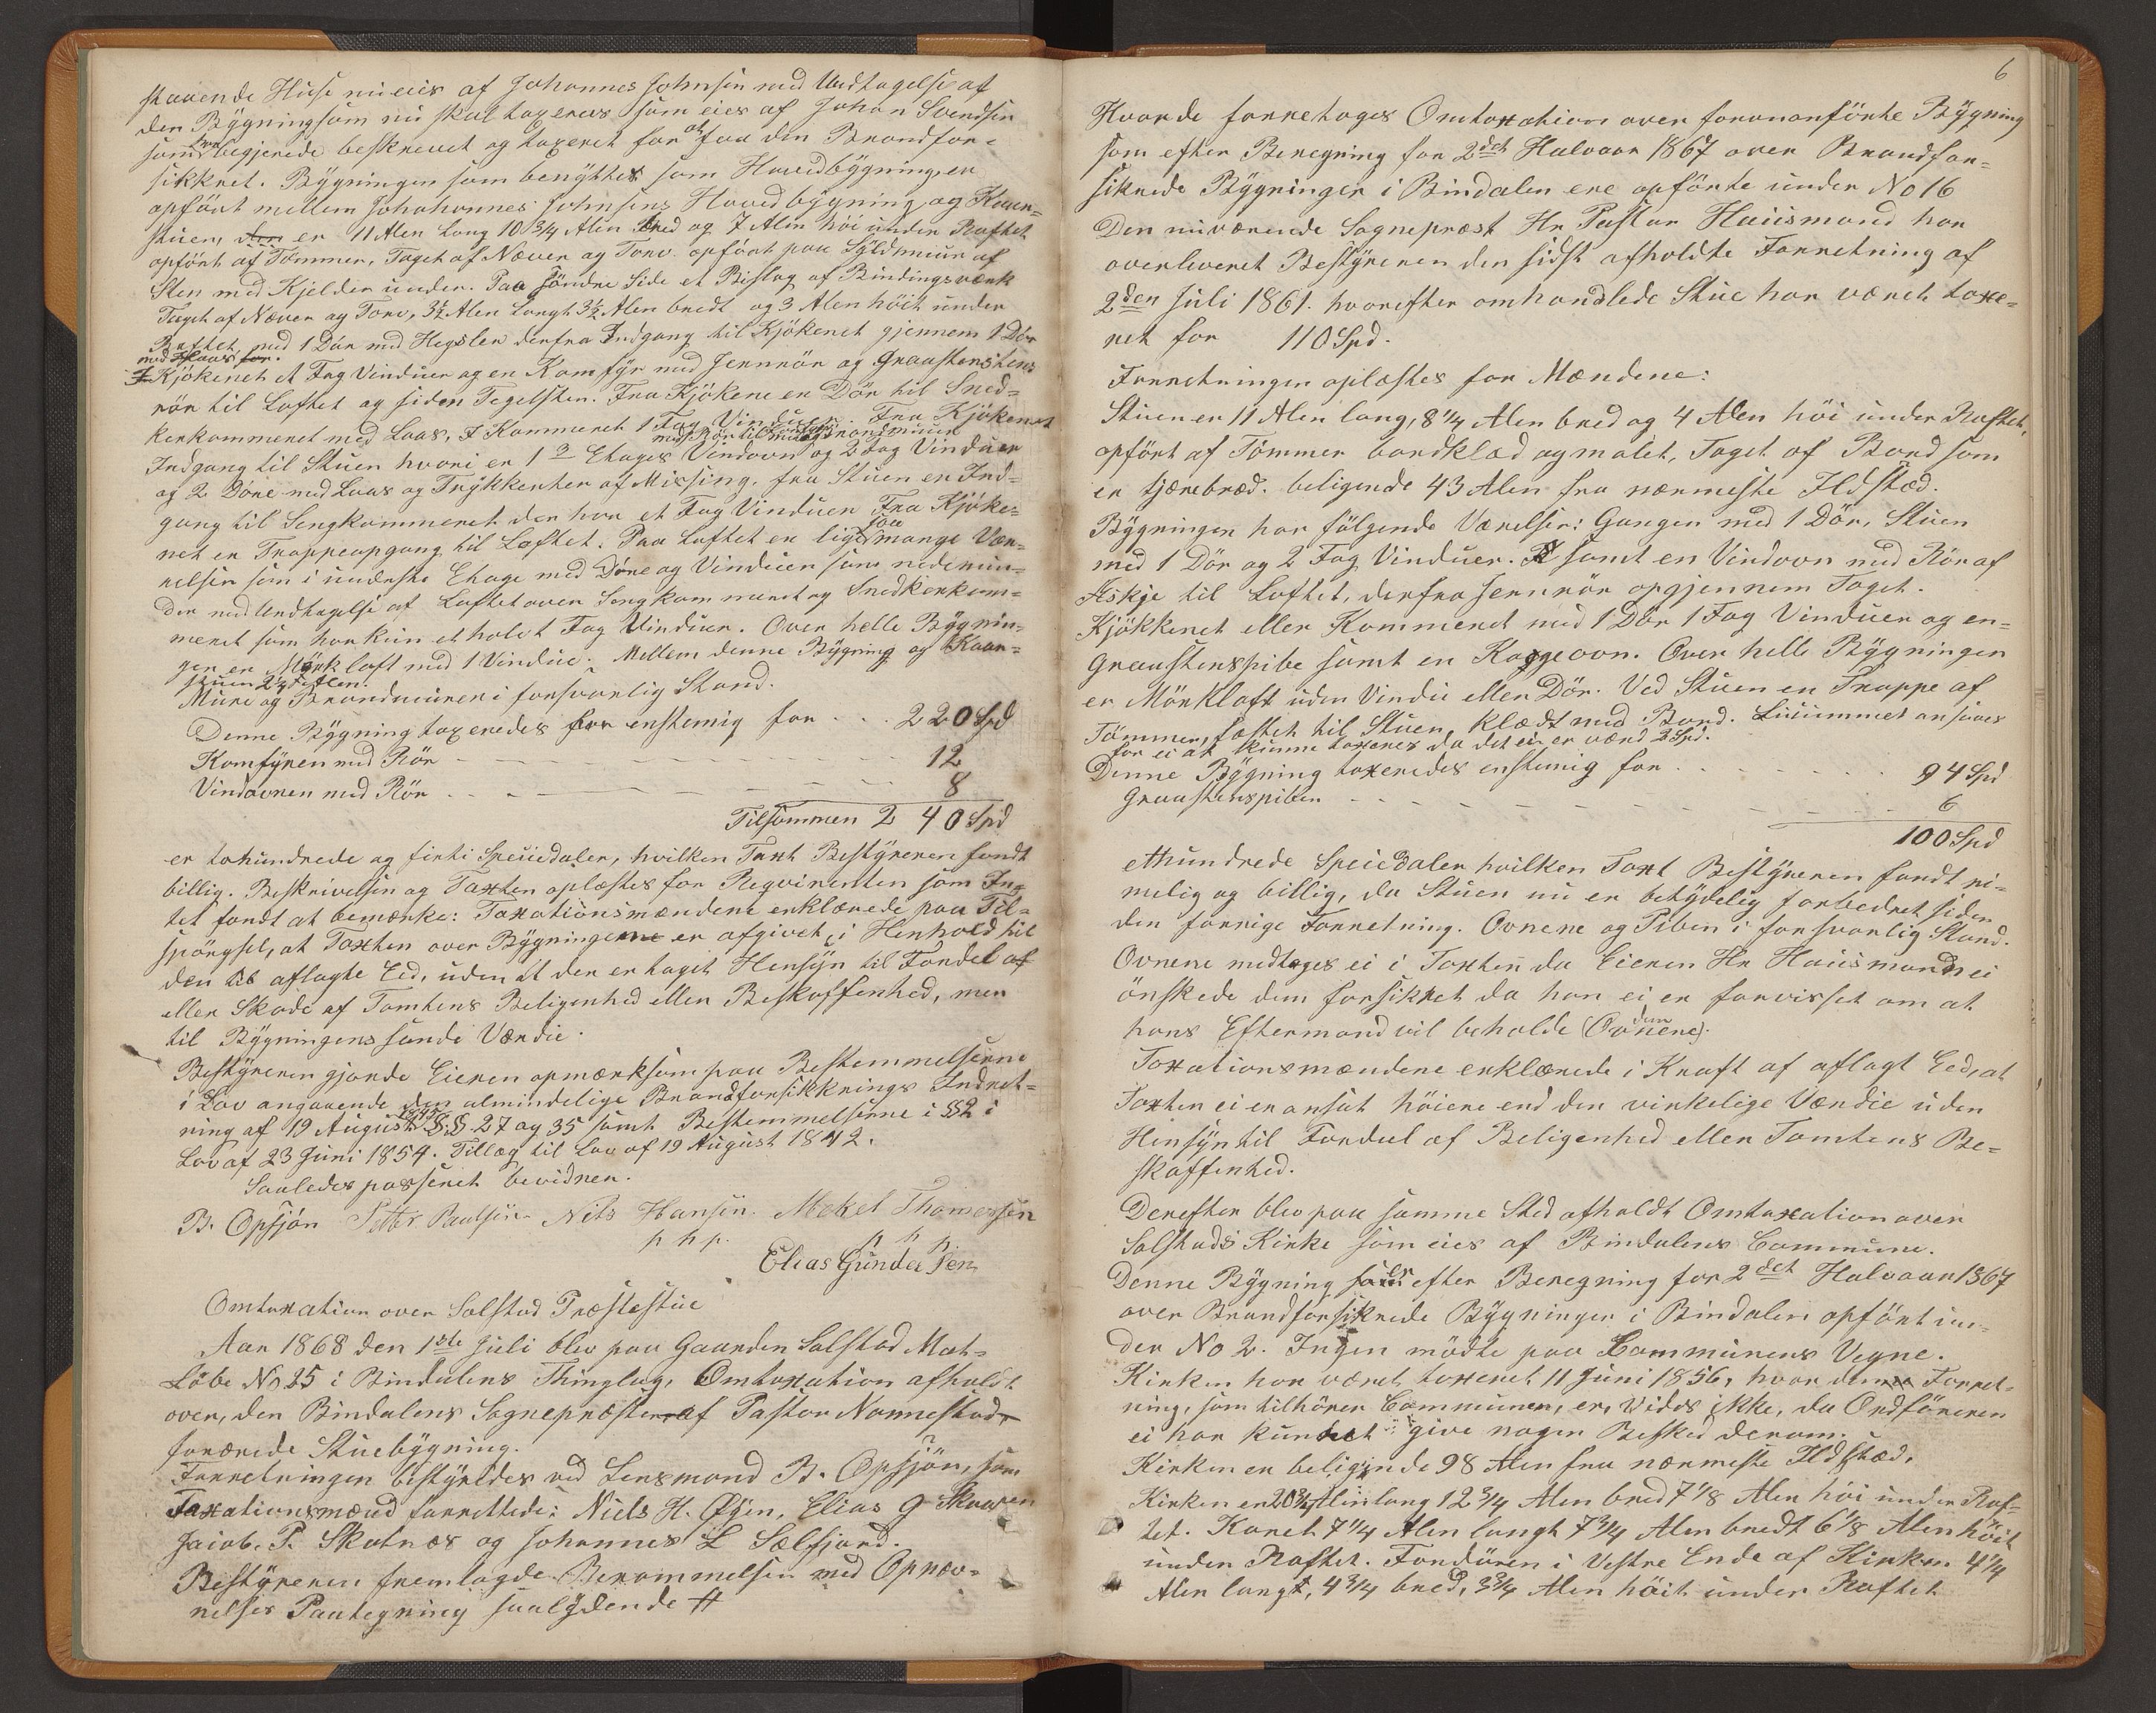 staaende Huse nu eies af Johannes Johnsen med Undtagelse af
den Bygning som nu skal taxeres som eies af Johan Svendsen
som han begjerede beskrevet og taxeret for at faa den Brandfor-
sikkret. Bygningen som benyttes som Hovedbygning, er
opført mellem Johohannes Johnsens Hovedbygning og Kaar-
stuen, den er 11 Alen lang 10 3/4 Alen bred og 7 Alen høi under Raftet
opført af Tømmer, Taget af Næver og Torv opført paa Syldmuur af
Sten med Kjelder under. Paa søndre Side et Bislag af Bindingsværk
Taget af Næver og Torv, 3 1/2 Alen langt 3 1/2 Alen bredt og 3 Alen høit under
Raftet, med 1 Dør med Hegsler derfra Indgang til Kjøkenet gjennem 1 Dør
med Laas for.
I Kjøkenet et Fag Vinduer og en Komfyr med Jernrør og Graastens
rør til Loftet og siden Tegelsten. Fra Kjøkene en Dør til Sned-
kerkammeret med Laas, I Kammeret 1 Fag Vinduer. Fra Kjøkenet
med Rør til muret Brandmuur
Indgang til Stuen hvori er 1 2 Etages Vindovn og 2 Fag Vinduer
og 2 Døre med Laas og Trykkerter af Missing. fra Stuen en Ind-
gang til Sengkammeret der har et Fag Vinduer Fra Kjøke-
net en Trappeopgang til Loftet. Paa Loftet er lige saa mange Vær-
relser som i underste Etage med Døre og Vinduer som nedenun-
der med Undtagelse af Loftet over Sengkammeret og Snedkerkam-
meret som har kun et halvt Fag Vinduer. Over helle Bygnin-
gen er Mørkloft med 1 Vindue. Mellem denne Bygning og Kaar-
stuen 2 1/4 Alen.
Mure og Brandmuren i forsvarlig Stand.
Denne Bygning taxeredes for enstemig for . . . 220 Spd
Komfyren med Rør 12
Vindovnen med Rør 8
Tilsammen 240 Spd
er tohundrede og firti Speciedaler, hvilken Taxt Bestyreren fandt
billig. Beskrivelsen og Taxten oplæstes for Reqvirenten som In-
tet fandt at bemærke: Taxationsmændene erklærede paa Til-
spørgsel, at Taxten over Bygningerne er afgivet, i Henhold til
den til aflagte Eed, uden at der er taget Hensyn til Fordel af
eller Skade af Tomtens Beligenhed eller Beskaffenhed, men
til Bygningens sande Værdie.
Bestyreren gjorde Eieren opmærksom paa Bestemmelserne
i Lov angaaende den almindelige Brandforsikkrings Indret-
ning af 19 August 1845 §.§. 27 og 35 samt Bestemmelserne i §2 i
Lov af 23 Juni 1854. Tillæg til Lov af 19 August 1842.
Saaledes passeret bevidner.
B. Opsjøn Petter Paulsen Nils Hansen Mekel Thomessen
p h p. p h p.
Elias Gundersen
Omtaxation over Solstad Præstestue
Aar 1868 den 1ste Juli blev paa Gaarden Solstad Mat-
Løbe No 25 i Bindalens Thinglag, Omtaxation afholdt
over, den Bindalens Sognepræster af Pastor Normestad
forærede Stuebygning.
Forretningen bestyredes ved Lensmand B. Opsjøn, som
Taxationsmænd forrettede: Niels H. Øien, Elias G Skaren
Jacob. P. Skotnæs og Johannes L Sælfjord.
Bestyreren fremlagde Berammelsen med Opnæv-
nelses Paategning saalydende #
6
Hvorde forretoges Omtaxation over foranførte Bygning
som efter Beregning for 2det Halvaar 1867 over Brandfor-
sikrede Bygninger i Bindalen ere opførte under No 16
Den nuværende Sognepræst Hr Pastor Hausmand har
overleveret Bestyreren den sidst afholdte Forretning af
2den Juli 1861. hvorefter omhandlede Stue har været taxe-
ret for 110 Spd.
Forretningen oplæstes for Mændene:
Stuen er 11 Alen lang, 8 1/4 Alen bred og 4 Alen høi under Raftet,
opført af Tømmer bordklæd og malet, Taget af Bord som
er tjærebræd. beligende 43 Alen fra nærmeste Ildsted.
Bygningen har følgende Værelser: Gangen med 1 Dør, Stuen
med 1 Dør og 2 Fag Vinduer. samt en Vindovn med Rør af
Æskje til Loftet, derfra Jernrør opgjennem Taget.
Kjøkkenet eller Kammeret med 1 Dør 1 Fag Vinduer og en
Graastenspibe samt en Kaggeovn. Over helle Bygningen
er Mørkloft uden Vindu eller Dør. Ved Stuen en Trappe af
Tømmer, fæstet til Stuen, klædt med Bord. Luummet ansaaes
for ei at kunne taxeres da det ei er værd 2 Spd.
Denne Bygning taxeredes enstemig for 94 Spd
Graastenspiben 6
100 Spd
etthundrede Speciedaler hvilken Taxt Bestyreren fandt ri-
melig og billig, da Stuen nu er betydelig forbedret siden
den forrige Forretning. Ovnene og Piben i forsvarlig Stand.
Ovnene medtages ei i Taxten da Eieren Hr Hausmand ei
ønskede dem forsikret da han ei er forvisset om at
hans Eftermand vil beholde dem (Ovnene).
Taxationsmændene erklærede i Kraft af aflagt Eed, at
Taxten ei er ansat høiere end den virkelige Værdie uden
Hensyn til Fordeel af Beligenhed eller Tomtens Be-
skaffenhed.
Derefter blev paa samme Sted afholdt Omtaxation over
Solstads Kirke som eies af Bindalens Commune.
Denne Bygning er efter Beregning for 2det Halvaar 1867
over Brandforsikrede Bygninger i Bindalen opført un-
der No 2. Ingen mødte paa Communens Vegne.
Kirken har været taxeret 11 Juni 1856, hvor denne Forret-
ning, som tilhører Communen, er, vides ikke, da Ordføreren
ei har kundet give nogen Besked derom.
Kirken er beligende 98 Alen fra nærmeste Ildsted,
Kirken er 20 3/4 Alen lang 12 3/4 Alen bred 7 1/8 Alen høi under Raf-
tet. Koret 7 1/4 Alen langt 7 3/4 Alen bredt 6 1/8 Alen høit
under Raftet. Fordøren i Vestre Ende af Kirken 4 1/4
Alen langt, 4 3/4 bred, 3 3/4 Alen høit under Raftet